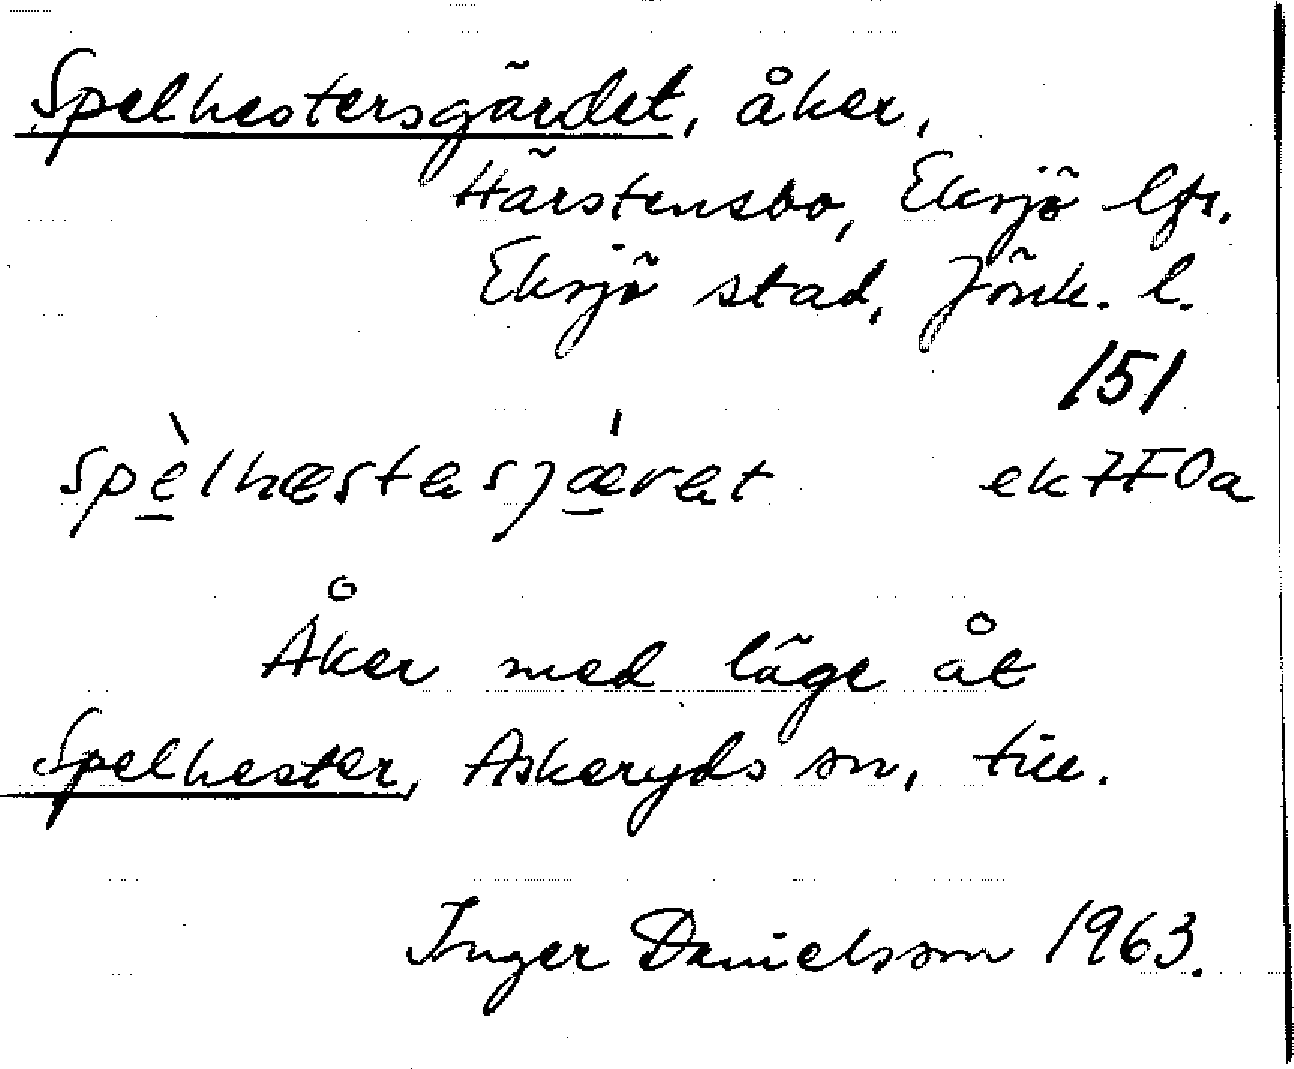 Spelhestersgärdet, åker,
Härstensbo, Eksjö lfs.
Eksjö stad, Jönk. l.
151
spèlhæstasjǽret ek7FOa
Åker med läge åt
Spelhester, Askeryds sn, till.
Inger Danielsson 1963.